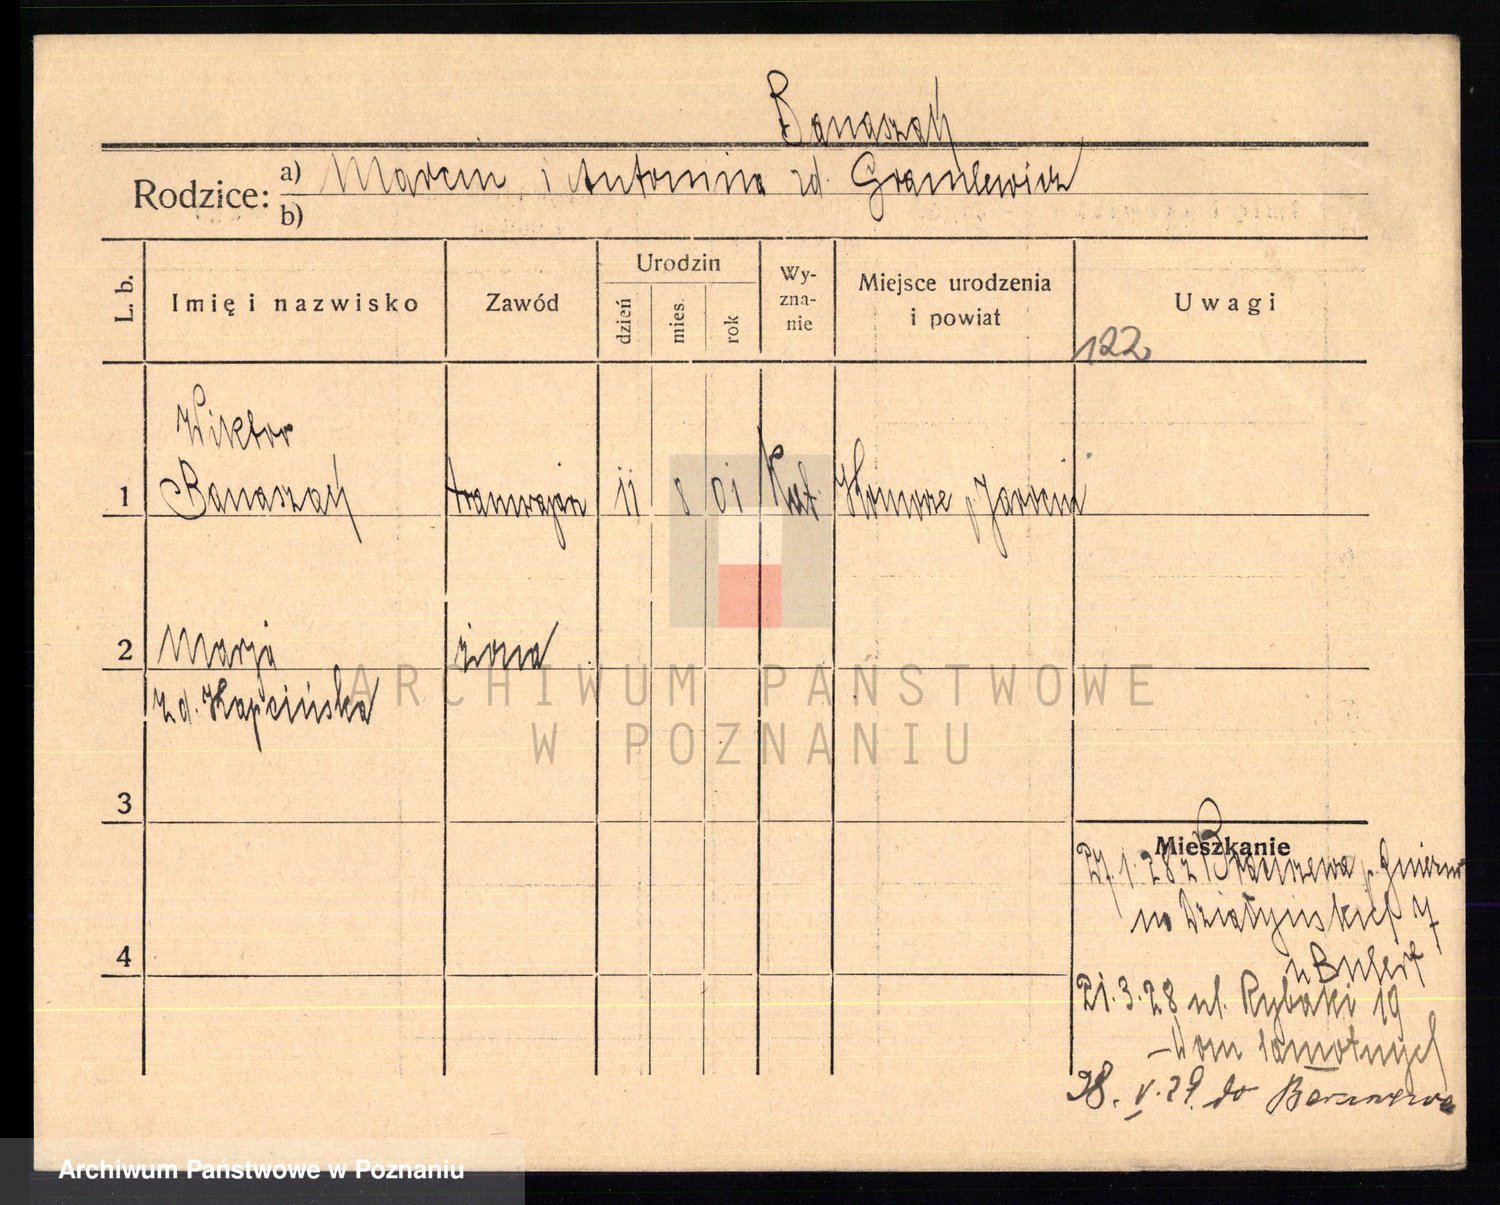 Banaszak
Rodzice: a) Marcin i Antonina zd. Gramlewicz
b)
L. b.
Imię i nazwisko
Zawód
Urodzin
dzień
mies.
rok
Wy-
zna-
nie
Miejsce urodzenia
i powiat
Uwagi
122
Wiktor
1 Banaszak tramwajarz 11 8 01 Kat. p. Jarocin
2 Marja żona
zd. Kapcińska
3
4
Mieszkanie
27.1.28 z p. Gniezno
na Działyńskich 7
u
21.3.28 ul. Rybaki 19
– Dom samotnych
28. V. 29. do
ARCHIWUM PAŃSTWOWE
W POZNANIU
Archiwum Państwowe w Poznaniu